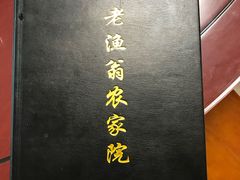 老渔翁农家院